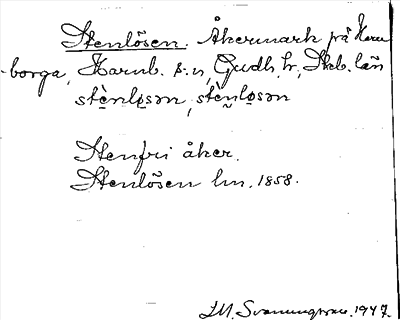 Stenlösen. Åkermark på Herre
borga, Karnb. s:n, Gudh. hr, Skb. län
stènlø̣sən, stènlọsən
Stenfri åker.
Stenlösen lm. 1858.
I.M. Svenungsson. 1947.